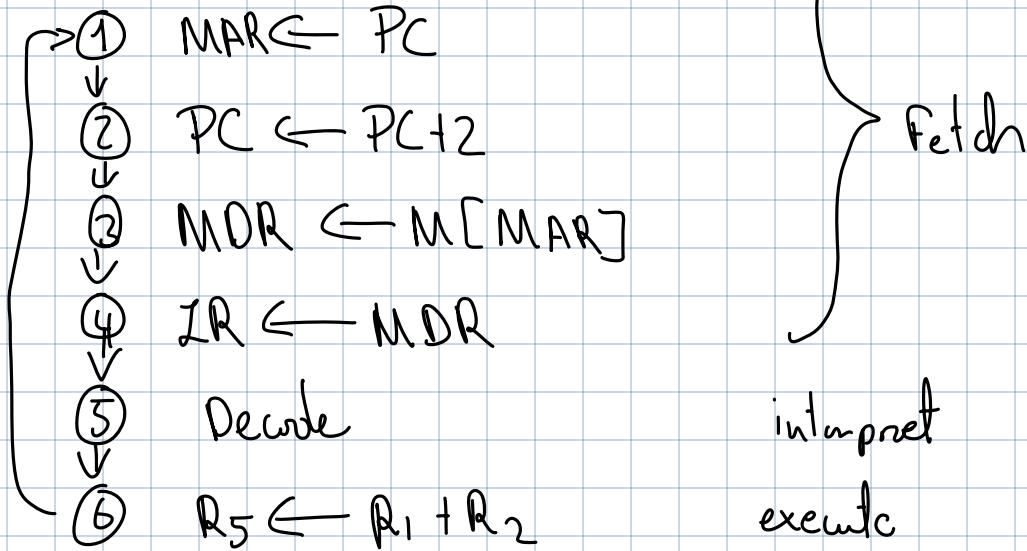 ① MAR ← PC
② PC ← PC+2
③ MDR ← M[MAR]
Fetch
④ IR ← MDR
⑤ Decode interpret
⑥ R5 ← R1 + R2 execute